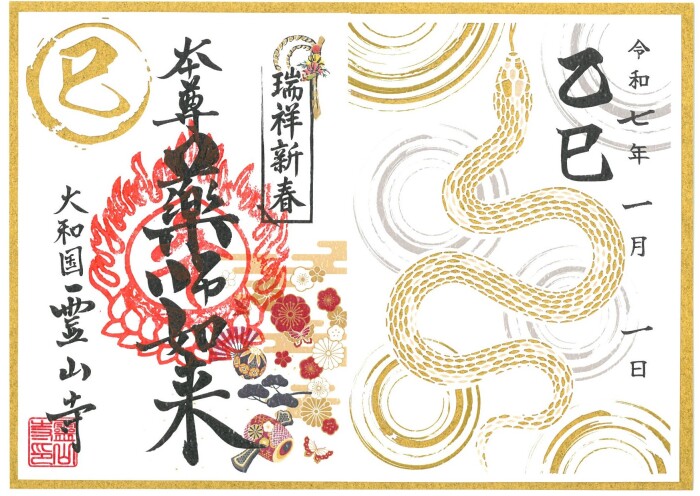 令和七年 一月 一日
乙巳
瑞祥新春
本尊 薬師如来
大和国 霊山寺
巳